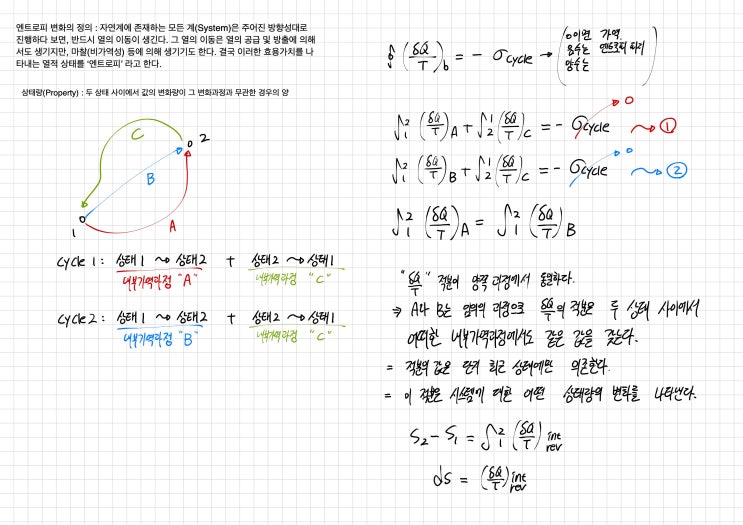 엔트로피 변화의 정의 : 자연계에 존재하는 모든 계(System)은 주어진 방향성대로
진행하다 보면, 반드시 열의 이동이 생긴다. 그 열의 이동은 열의 공급 및 방출에 의해
서도 생기지만, 마찰(비가역성) 등에 의해 생기기도 한다. 결국 이러한 효용가치를 나
타내는 열적 상태를 '엔트로피' 라고 한다.
상태량(Property) : 두 상태 사이에서 값의 변화량이 그 변화과정과 무관한 경우의 양
C
2
B
1
A
cycle 1 : 상태1 ⤳ 상태2 + 상태2 ⤳ 상태1
내부가역과정 "A" 내부가역과정 "C"
cycle 2 : 상태1 ⤳ 상태2 + 상태2 ⤳ 상태1
내부가역과정 "B" 내부가역과정 "C"
∮(δQ/T)b = - σcycle → (0이면 가역
음수는 엔트로피
양수는 )
∫₁²(δQ/T)A + ∫₂¹(δQ/T)C = - σcycle 0 ⤳ ①
∫₁²(δQ/T)B + ∫₂¹(δQ/T)C = - σcycle 0 ⤳ ②
∫₁²(δQ/T)A = ∫₁²(δQ/T)B
"δQ/T" 적분이 양쪽 과정에서 동일하다.
⇒ A나 B는 임의의 과정으로 δQ/T의 적분은 두 상태 사이에서
어떠한 내부가역과정에서도 같은 값을 갖는다.
= 적분의 값은 단지 최근 상태에만 의존한다.
= 이 적분은 시스템에 대한 어떤 상태량의 변화를 나타낸다.
S₂-S₁ = ∫₁²(δQ/T) int rev
ds = (δQ/T) int rev